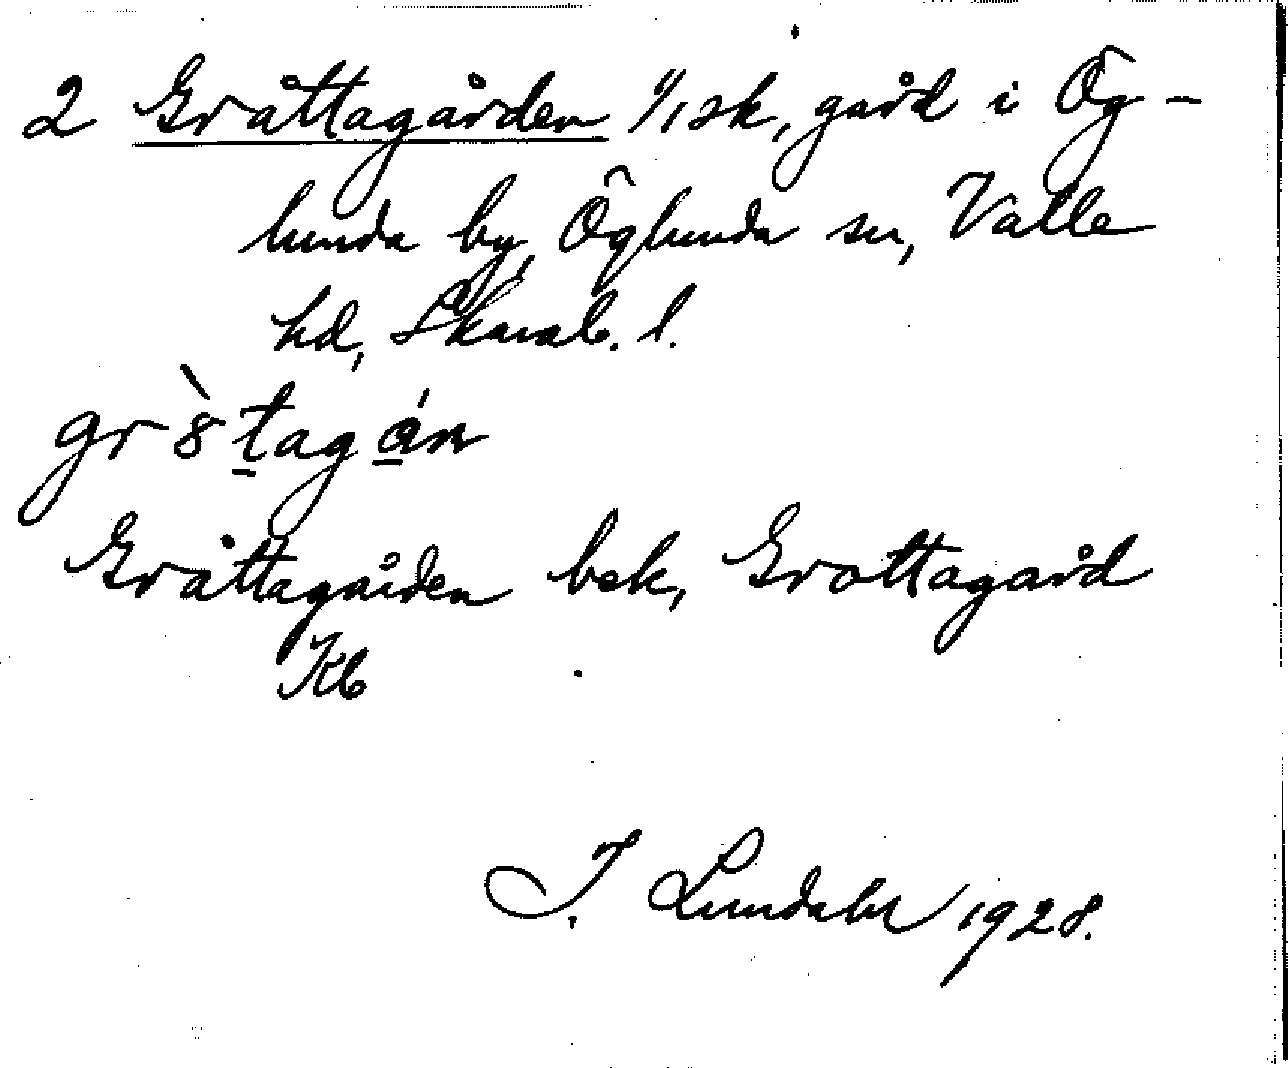 2 Gråttagården 1/1 sk, gård i Ög-
lunda by, Öglunda sn, Valle
hd, Skarab. l.
gr8̀tagán
Gråttagården bek, Grottagård
Kb
I. Lundahl 1928.